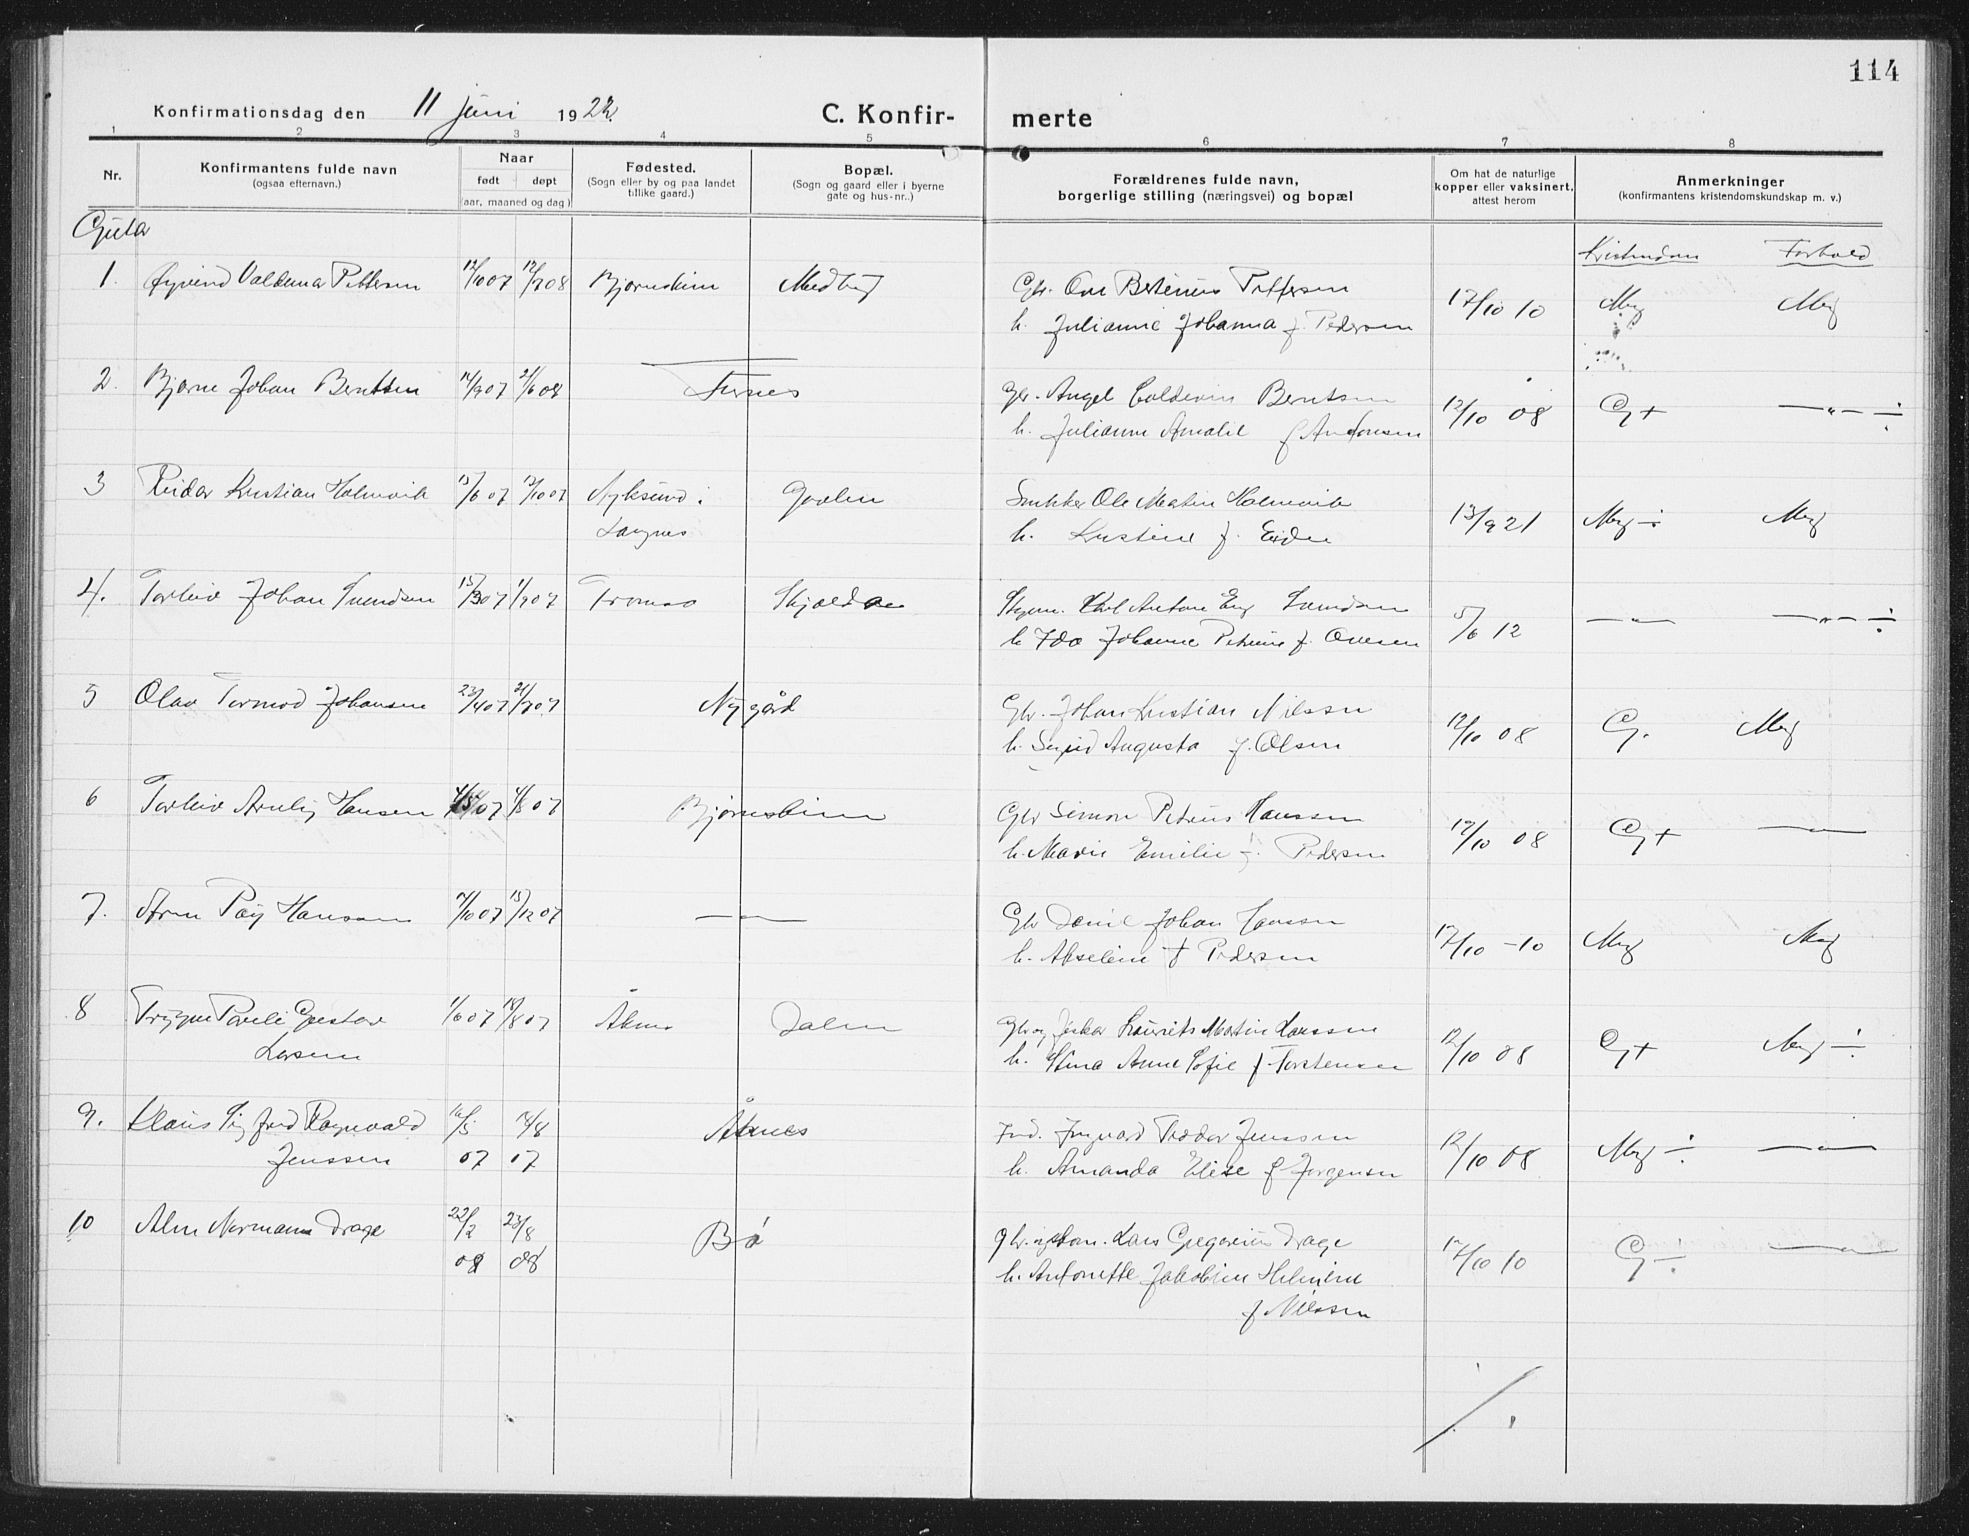 114
Konfirmationsdag den 11 juni 1922.
C. Konfirmerte
1 2 3 4 5 6 7 8
Nr.
Konfirmantens fulde navn
(ogsaa efternavn.)
Naar
født døpt
(aar, maaned og dag)
Fødested.
(Sogn eller by og paa landet
tillike gaard.)
Bopæl.
(Sogn og gaard eller i byerne
gate og hus-nr..)
Forældrenes fulde navn,
borgerlige stilling (næringsvei) og bopæl
Om hat de naturlige
kopper eller vaksinert,
attest herom
Anmerkninger
(konfirmantens kristendomskundskap m. v.)
Gutar
Kristendom Forhold
1. Øyvind Valdemar Pettersen 12/10 07 12/7 08 Bjørnskinn Medby Gbr. Ove Bertinus Pettersen 17/10 10 Mg Mg
h. Julianne Johanna f. Pedersen
2. Bjarne Johan Berntsen 14/9 07 21/6 08 Fornes Gbr. Angel Coldevin Berntsen 12/10 08 G+ —"— ÷
h. Julianne Amalie f Antonsen
3 Reidar Kristian Holmvik 13/6 07 13/10 07 Nyksund i Gavlen Ole Martin Holmvik 13/9 21 Mg ÷ Mg
Langnes h. Kristine f. Eiden
4. Torleiv Johan Svendsen 15/3 07 1/9 07 Tromsø Anton Svendsen 5/6 12 —"— —"— ÷
h Ida Johanne Petrine f. Ovesen
5 Olav Tormod Johansen 23/4 07 21/7 07 Nygård Gbr. Johan Kristian Nilssen 12/10 08 G. Mg
h. Sigrid Augusta f. Olsen
6 Torleiv Hansen 07 4/8 07 Bjørnskinn Gbr Simon Petrus Hanssen 12/10 08 G+ —"—
h. Marie Emilie f. Pedersen
7. Arne Hansen 7/10 07 15/12 07 —"— Gbr Johan Hanssen 17/10 -10 Mg Mg
h. Akseline f Pedersen
8 Trygve Pauli Gustav 1/6 07 18/8 07 Åknes Dalen Gbr og fisker Laurits Martin Larssen 12/10 08 G+ Mg ÷
Larsen h. Stina Anne Sofie f. Torstensen
9. Klaus Sigfred Ragnvald 16/5 18/8 Åknes Ingvard Jenssen 12/10 08 Mg ÷ —"—
Jenssen 07 07 h. Amanda Elise f Jørgensen
10 Normann Drage 22/2 23/8 Bø Lars Gregorius Drage 17/10 10 G ÷ —"—
08 08 h. Antonette Jakobine Helmine
f Nilssen